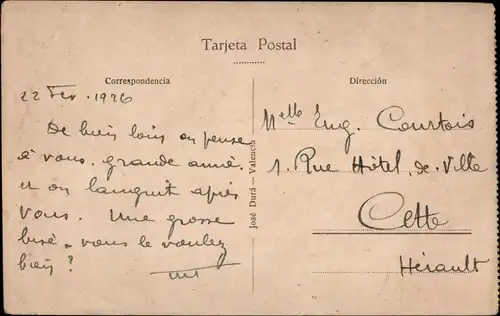 Tarjeta Postal
Correspondencia
22 Fev. 1926
De bien loin on pense
à vous. grande amie.
et on languit après
vous. Une grosse
bise - vous le voulez
bien ?
José Durá — Valencia
Dirección
Melle Eug. Courtois
1. Rue Hôtel de Ville
Cette
Hérault